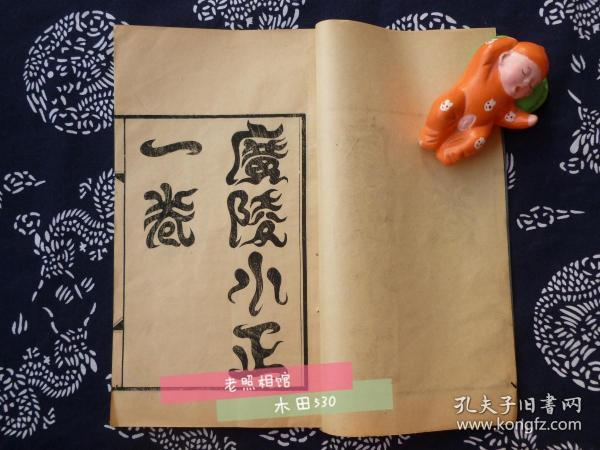 廣陵小正
一卷
老照相馆
木田530
孔夫子旧書网
www.kongfz.com